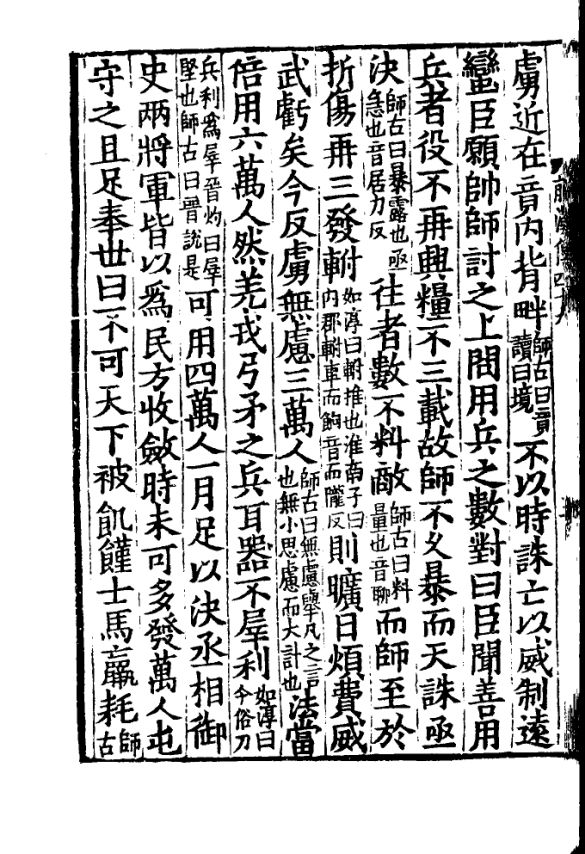 虜近在竟內背畔師古曰竟讀曰境不以時誅亡以威制遠
蠻臣願帥師討之上問用兵之數對曰臣聞善用
兵者役不再興糧不三載故師不久暴而天誅亟
決師古曰暴露也亟急也音居力反往者數不料敵師古曰料量也音聊而師至於
折傷再三發軵如淳曰軵推也淮南子曰內郡軵車而餉音而隴反則曠日煩費威
武虧矣今反虜無慮三萬人師古曰無慮舉凡之言也無小思慮而大計也法當
倍用六萬人然羌戎弓矛之兵耳器不犀利如淳曰今俗刀
兵利爲犀晉灼曰犀堅也師古曰晉說是可用四萬人一月足以決丞相御
史兩將軍皆以爲民方收斂時未可多發萬人屯
守之且足奉世曰不可天下被飢饉士馬羸耗師古